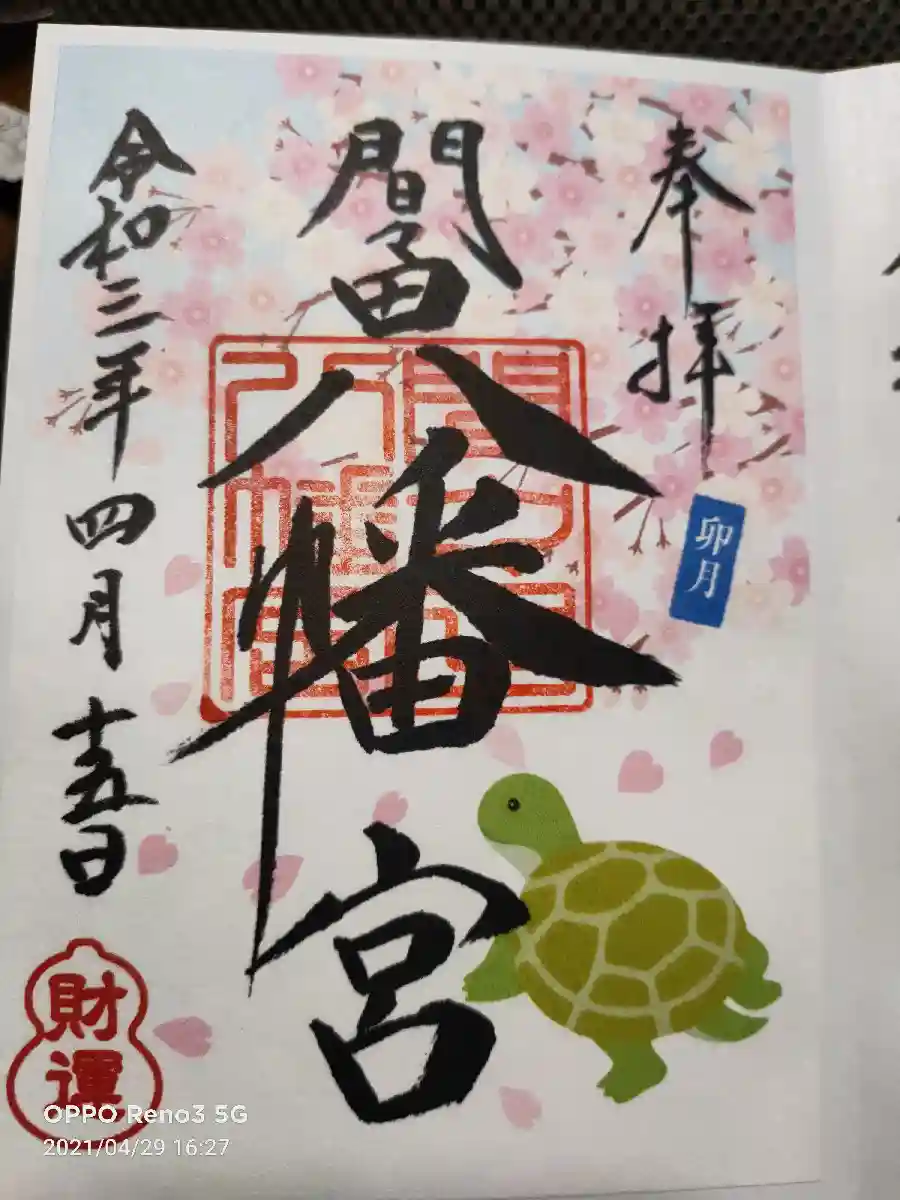 奉拝
卯月
間々田八幡宮
令和三年四月十五日
財運
OPPO Reno3 5G
2021/04/29 16:27